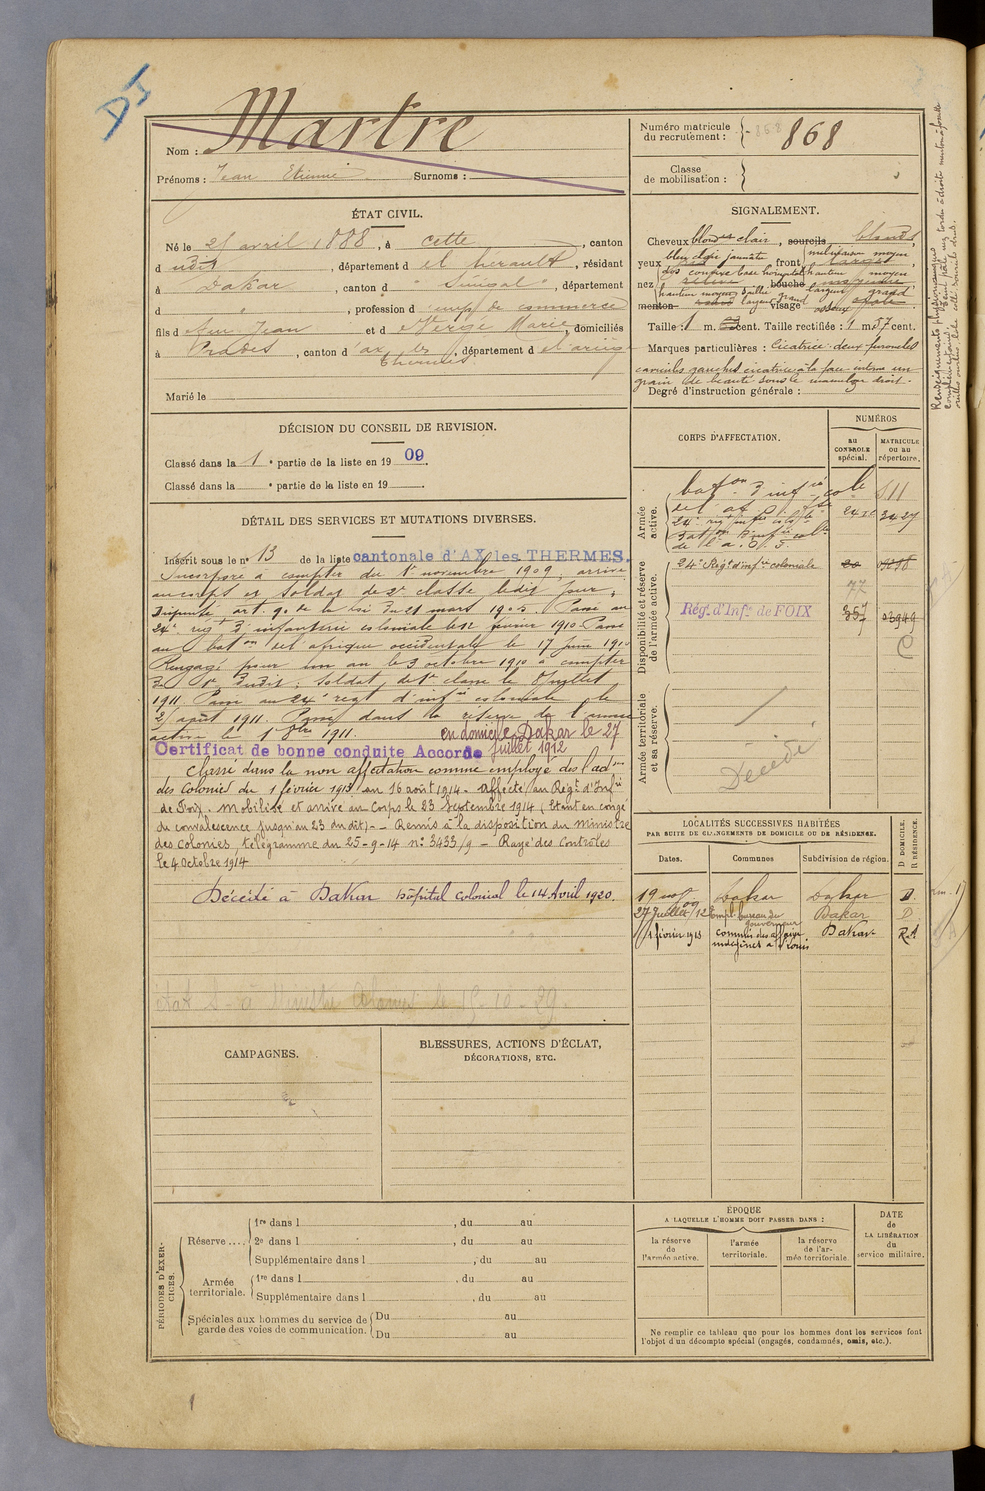 DJ
Nom : Martre
Prénoms : Jean Etienne Surnoms :
Numéro matricule
du recrutement : 868
Classe
de mobilisation :
ÉTAT CIVIL.
Né le 21 avril 1888, à Cette, canton
d udit, département d e l'herault, résidant
à Dakar, canton d " Sénégal ", département
d ", profession d emp. de commerce
fils d e feu Jean et d e Vergé Marie, domiciliés
à Prades, canton d'ax les Thermes, département d e l'ariège
Marié le
SIGNALEMENT.
Cheveux blonds clair, sourcils blonds,
yeux bleu clair front
nez bouche
menton visage
Taille : 1 m. cent. Taille rectifiée : 1 m. 57 cent.
Marques particulières : Cicatrice deux furoncles
grain de beauté sous le mamelon droit.
Degré d'instruction générale :
DÉCISION DU CONSEIL DE REVISION.
Classé dans la 1 e partie de la liste en 19 09.
Classé dans la e partie de la liste en 19
DÉTAIL DES SERVICES ET MUTATIONS DIVERSES.
Inscrit sous le n° 13 de la liste cantonale d'AX les THERMES.
Incorporé à compter du 1er novembre 1909, arrivé
au corps et soldat de 2e classe ledit jour,
art. 90 de la loi du 21 mars 1905. Passé au
24e régt d'infanterie coloniale le 12 février 1910. Passé
au baton de l'afrique occidentale le 17 juin 1910
Rengagé pour un an le 3 octobre 1910 à compter
du 1er dudit. Soldat de 1re classe le 8 juillet
1911. Passé au 24e régt d'infie coloniale le
21 août 1911. Passé dans la réserve de l'armée
active le 1er 9bre 1911. en domicile Dakar le 27
Certificat de bonne conduite Accordé juillet 1912
Classé dans la non affectation comme employé des l'adon
des Colonies du 1 février 1913 au 16 août 1914 - affecté au Régt d'Infie
de Foix. Mobilisé et arrivé au Corps le 23 Septembre 1914 (Etant en congé
de convalescence jusqu'au 23 dudit) - Remis à la disposition du Ministre
des colonies, télégramme du 25-9-14 n° 3433/9 - Rayé des Contrôles
le 4 Octobre 1914
Décédé à Dakar hôpital Colonial le 14 Avril 1920.
CORPS D'AFFECTATION.
NUMÉROS
AU
CONTROLE
spécial.
MATRICULE
ou au
répertoire.
Armée
active.
baton d'infie cole 511
de l'af.
24e régt infie colle 3427
baton d'infie colle
de l'a. O. F.
Disponibilité et réserve
de l'armée active.
24e Régt d'infie coloniale
77
Régt d'Infie de FOIX 357 03949
C
Armée territoriale
et sa réserve.
Décédé
LOCALITÉS SUCCESSIVES HABITÉES
PAR SUITE DE CHANGEMENTS DE DOMICILE OU DE RÉSIDENCE.
Dates. Communes Subdivision de région. D DOMICILE. R RÉSIDENCE.
Dakar Dakar D.
27 Juillet 12 Empl. bureau du gouverneur Dakar D.
1 février 1913 commis des affaires indigènes à St Louis Dakar R.A
CAMPAGNES.
BLESSURES, ACTIONS D'ÉCLAT,
DÉCORATIONS, ETC.
PÉRIODES D'EXERCICES.
Réserve....
1re dans l , du au
2e dans l , du au
Supplémentaire dans l , du au
Armée
territoriale.
1re dans l , du au
Supplémentaire dans l , du au
Spéciales aux hommes du service de
garde des voies de communication.
Du au
Du au
ÉPOQUE
A LAQUELLE L'HOMME DOIT PASSER DANS :
la réserve
de
l'armée active.
l'armée
territoriale.
la réserve
de l'ar-
mée territoriale.
DATE
de
LA LIBÉRATION
du
service militaire.
Ne remplir ce tableau que pour les hommes dont les services font
l'objet d'un décompte spécial (engagés, condamnés, omis, etc.).